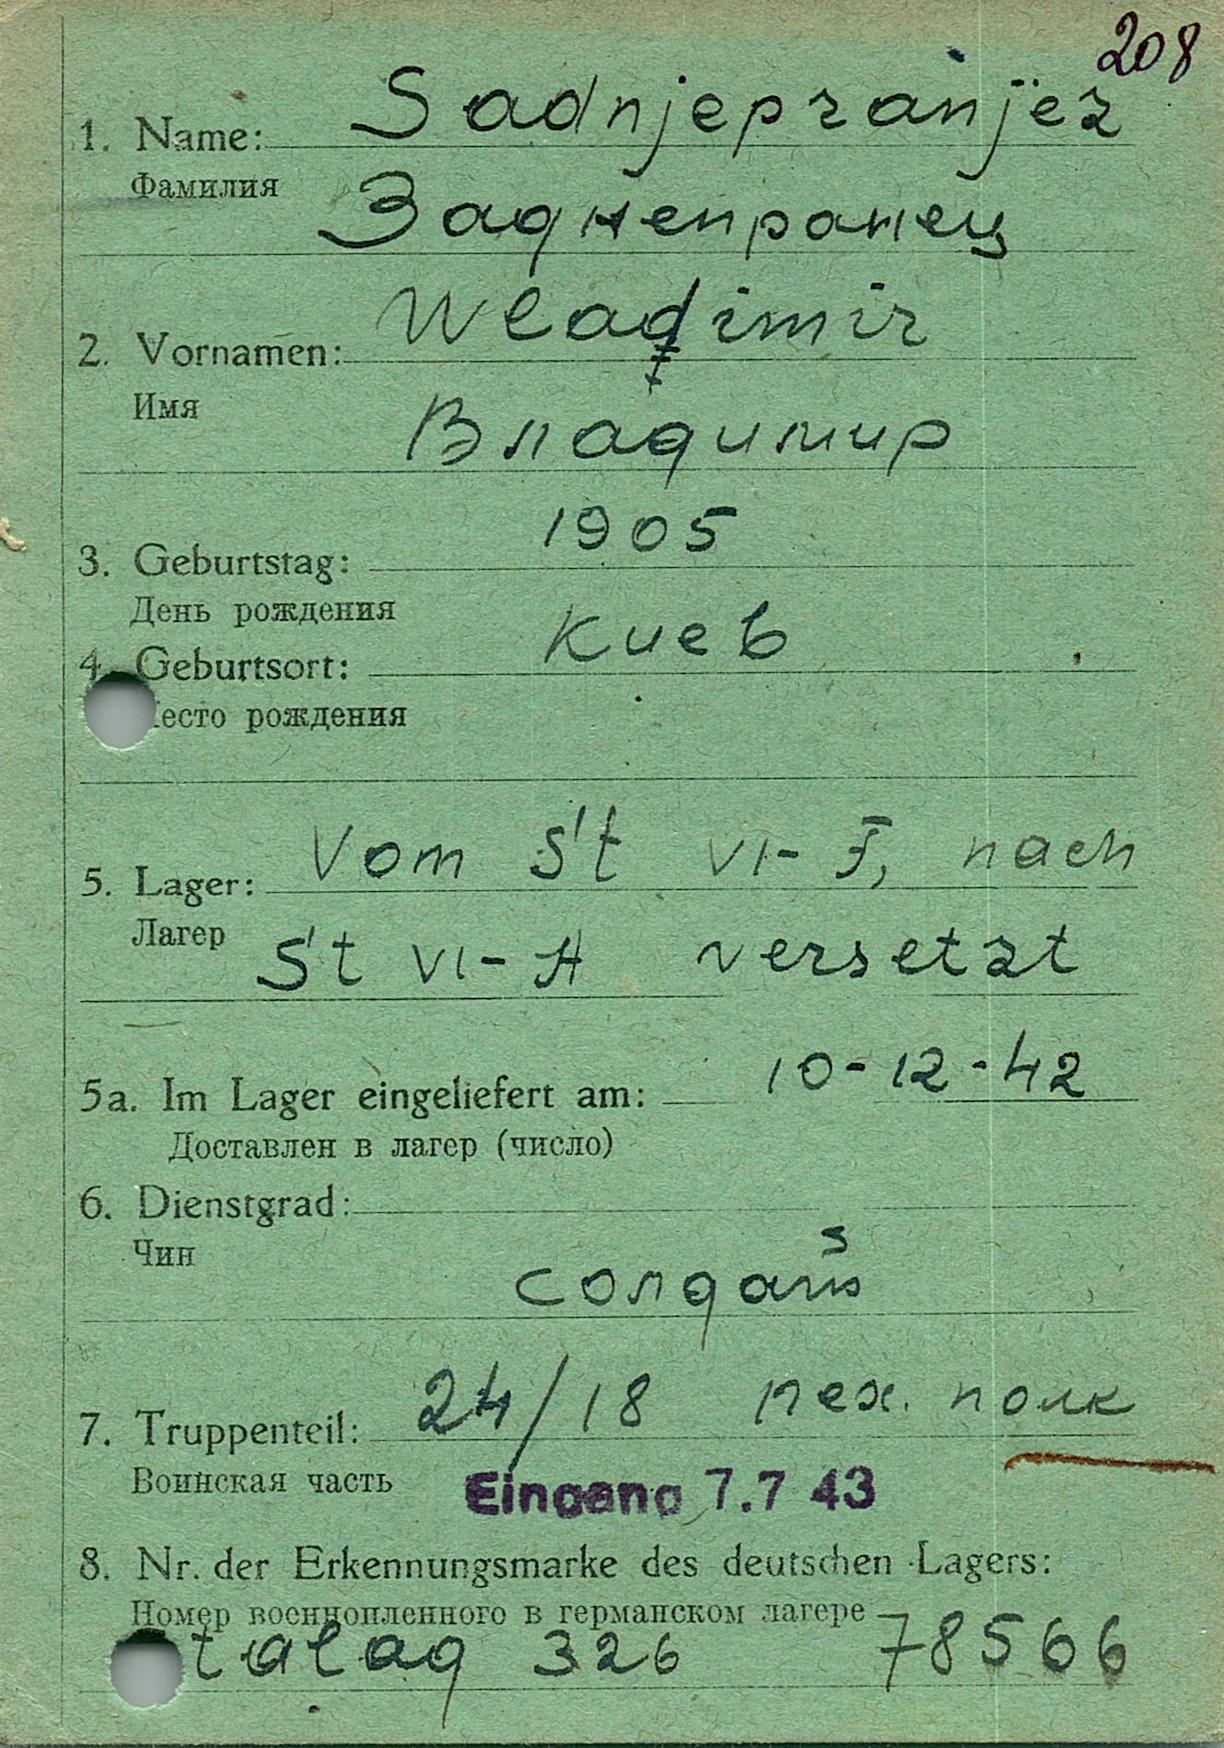 208
1. Name: Sadnjepranjez
Фамилия
Заднепранец
2. Vornamen: Wladimir
Имя
Владимир
3. Geburtstag: 1905
День рождения
4. Geburtsort: Киев
есто рождения
5. Lager: Vom St VI-F, nach
Лагер
St VI-A versetzt
5a. Im Lager eingeliefert am: 10-12-42
Доставлен в лагер (число)
6. Dienstgrad:
Чин
S
солдат
7. Truppenteil: 24/18 пех. полк
Воинская часть
Eingang 7.7 43
8. Nr. der Erkennungsmarke des deutschen Lagers:
Номер военнопленного в германском лагере
talag 326 78566